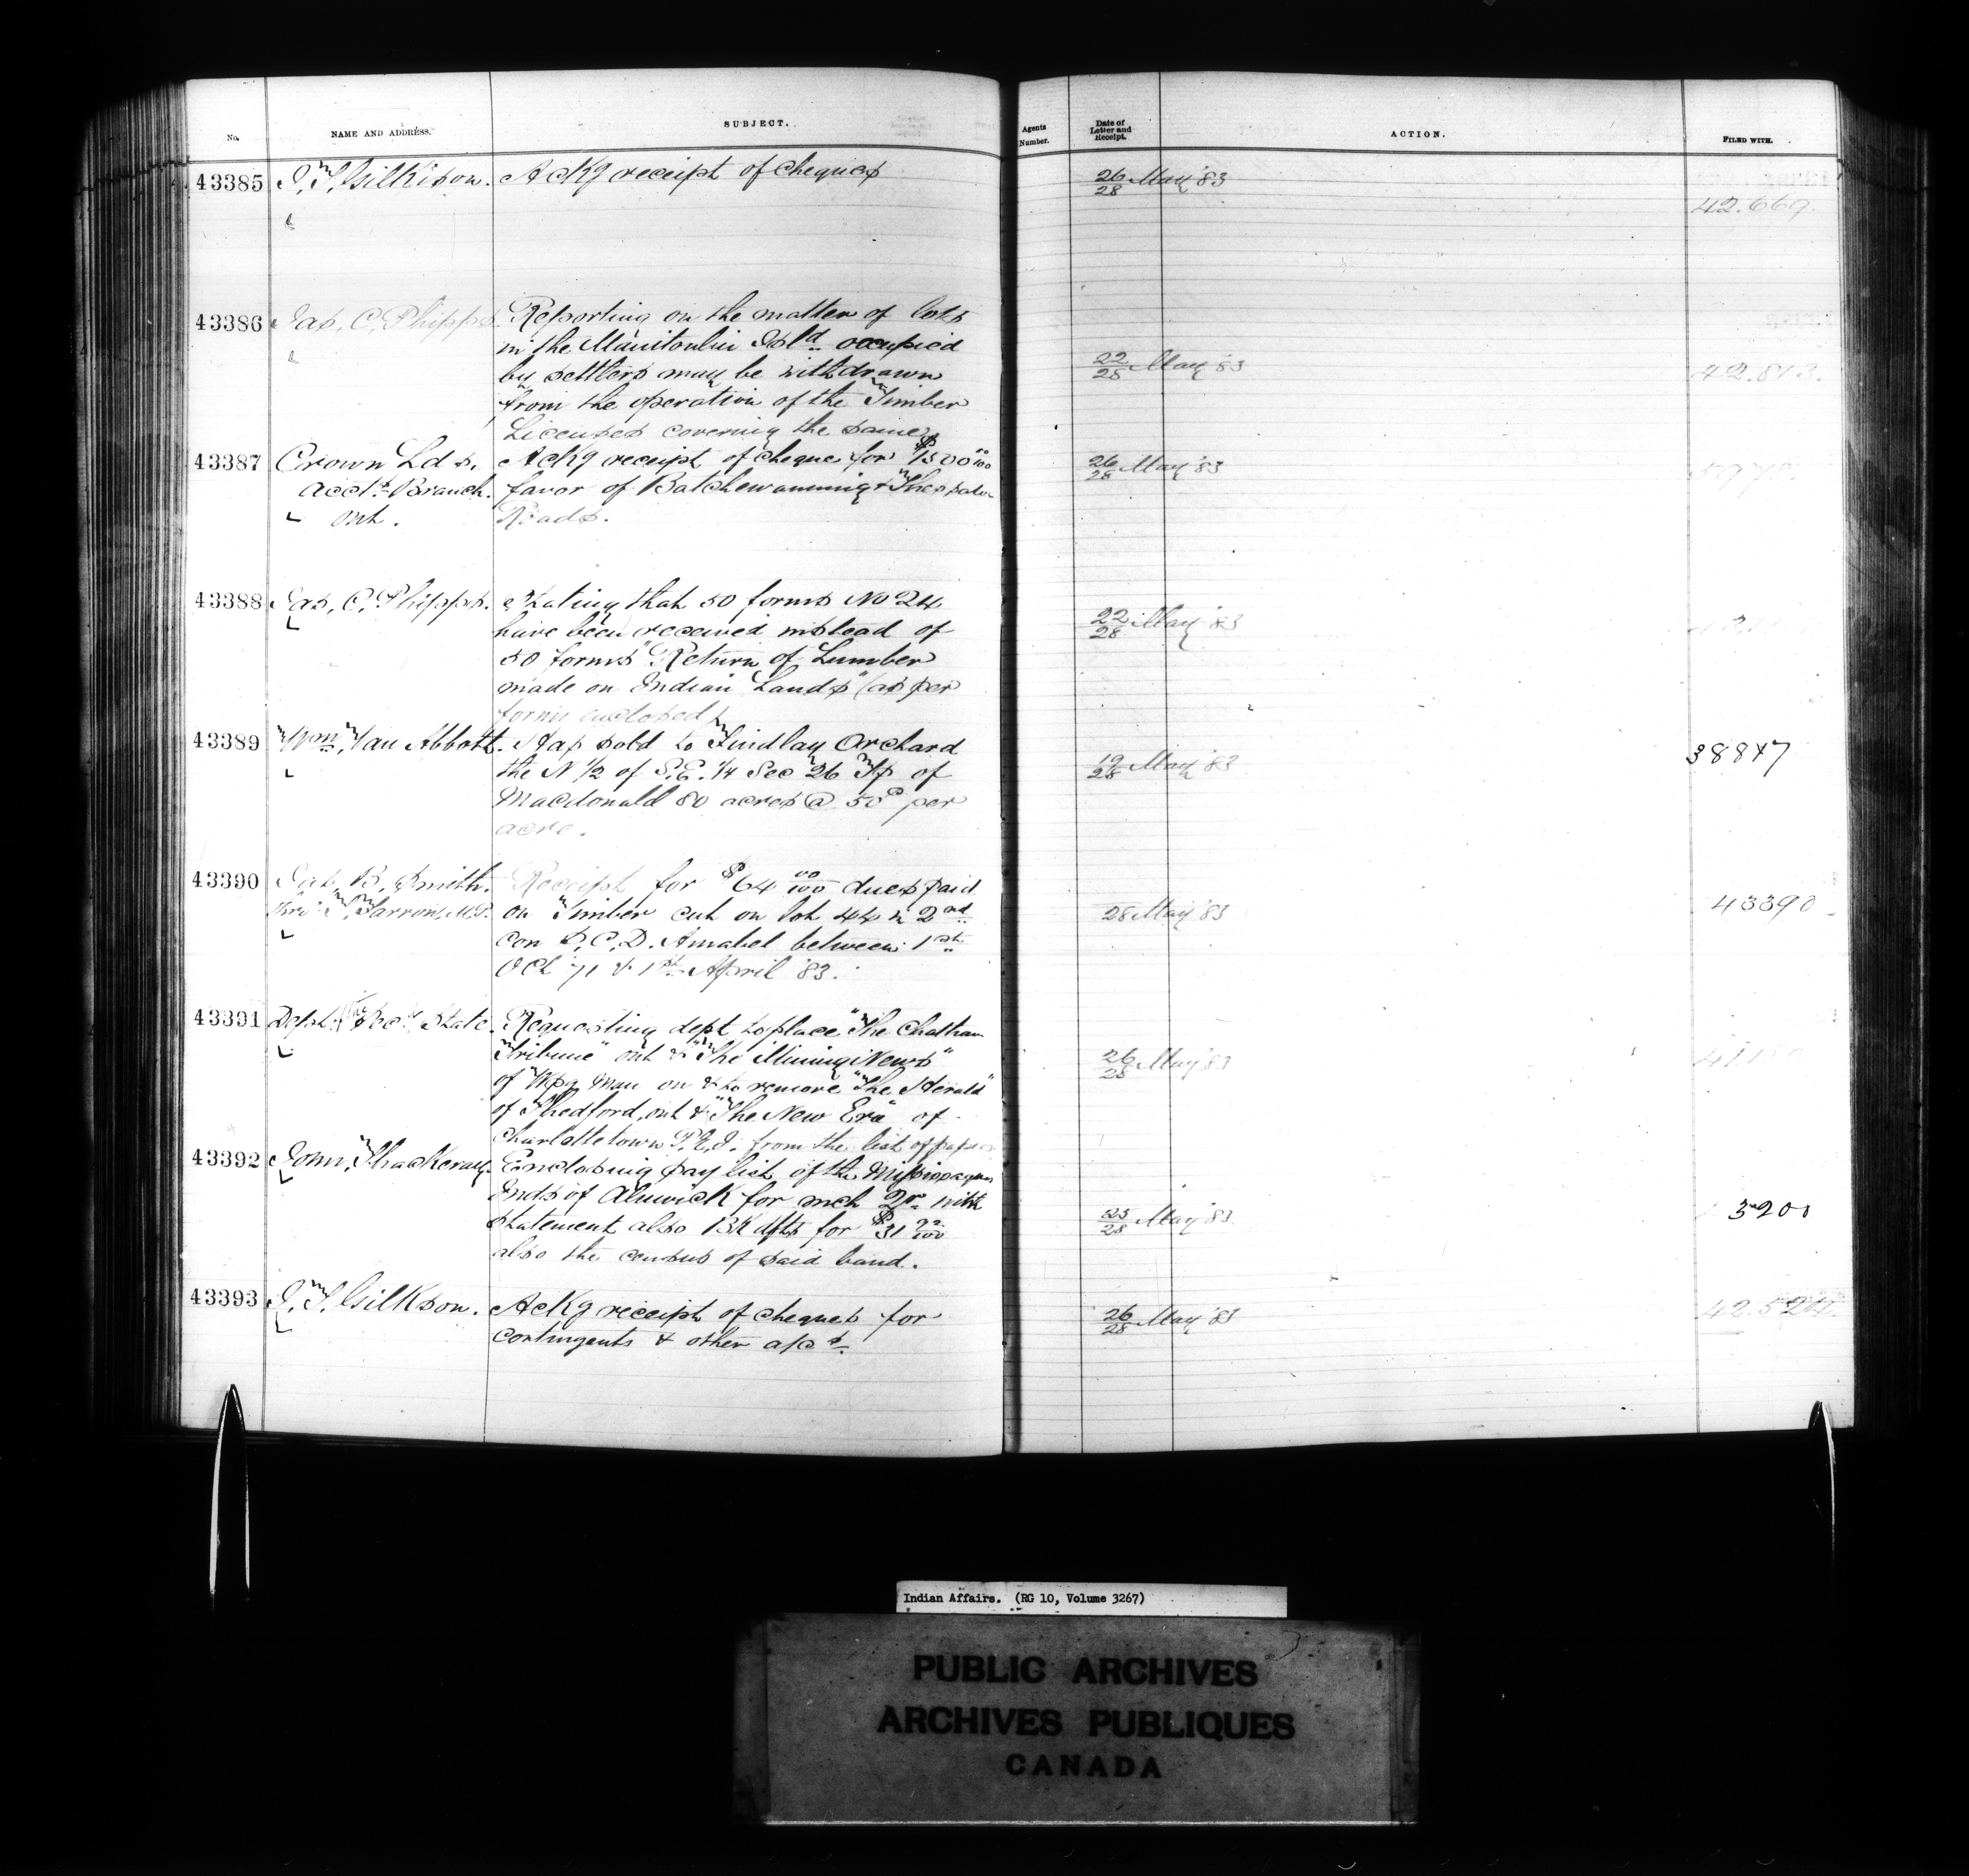 No.
NAME AND ADDRESS.
SUBJECT.
Agents
Number.
Date of
Letter and
Receipt.
ACTION.
FILED WITH.
43385
J. T. Gilkison.
Ackg receipt of cheques
26/28 May '83
42.667.
43386
Jas. C. Phipps.
Reporting on the matter of lots
in the Manitoulin Isld occupied
by settlers may be withdrawn
from the operation of the Timber
Licenses covering the same
22/28 May '83
42.813.
43387
Crown Lds.
Accts Branch.
Ont.
Ackg receipt of cheque for $1500 00/100
favor of Batchewanning &
Roads.
26/28 May '83
5978.
43388
Jas. C. Phipps.
Stating that 50 forms No 24
have been received instead of
50 forms "Return of Lumber
made on Indian Lands" (as per
form enclosed)
22/28 May '83
43389
Wm. Van Abbott.
Has sold to Findlay Orchard
the N 1/2 of S.E. 1/4 Sec 26 Tp of
Macdonald 80 acres @ 50c per
acre.
19/28 May '83
38847
43390
Jas. B. Smith.
thro' Farrow, M.P.
Receipt for $64 00/100 dues paid
on Timber cut on lot 44 in 2nd
Con S.C.D. Amabel between 1st
Oct '71 & 1st April '83.
28 May '83
43390
43391
Dept. Sec. State.
Requesting dept to place "The Chatham
Tribune" ont & "The Mining News"
of Wpg Man on & to remove "The Herald"
of Thedford, ont & "The New Era" of
Charlottetown P.E.I. from the list of papers
26/28 May '83
43392
John Thackeray.
Enclosing pay list of the Mississaguas
Inds of Alnwick for mch Qr with
statement also BK dfts for $31
also the census of said band.
25/28 May '83
3200
43393
J. T. Gilkison.
Ackg receipt of cheques for
contingents & other a/cs.
26/28 May '83
42.524.
Indian Affairs. (RG 10, Volume 3267)
PUBLIC ARCHIVES
ARCHIVES PUBLIQUES
CANADA